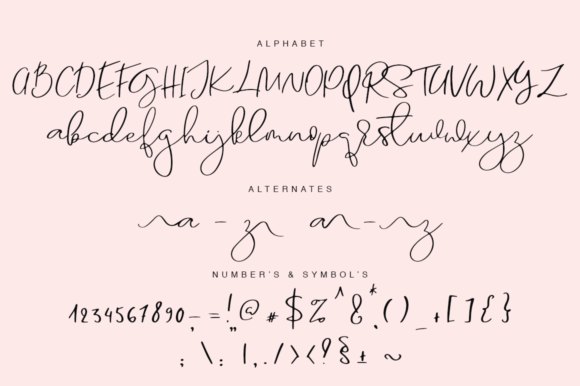 ALPHABET
ABCDEFGHIJKLMNOPQRSTUVWXYZ
abcdefghijklmnopqrstuvwxyz
ALTERNATES
a - z a - z
NUMBER'S & SYMBOL'S
1234567890-,=!„@#$%^&*.()_+[]{}
;\:|,./><?§±~